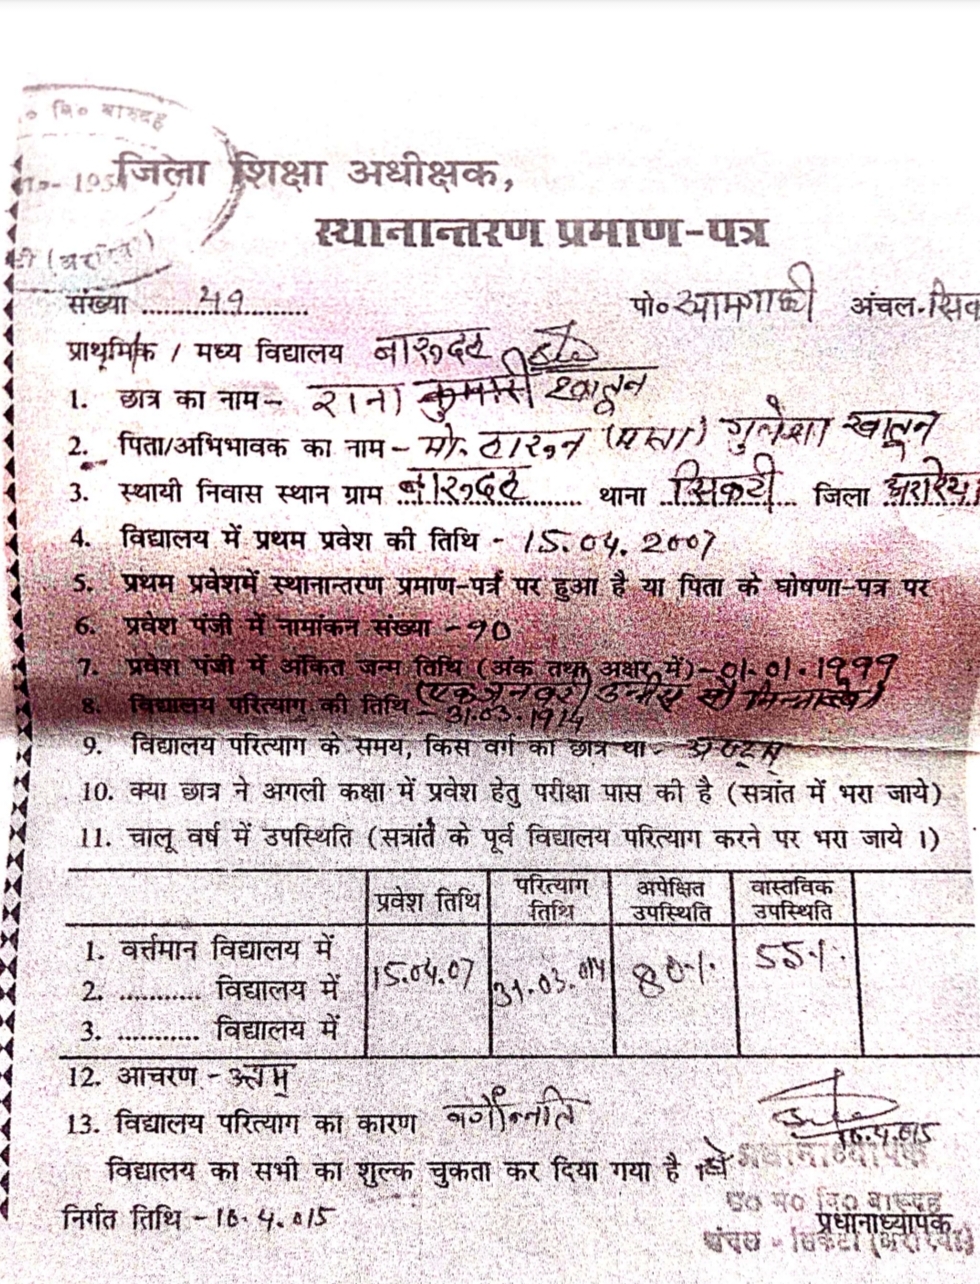 ० वि० बारुदह
जिला शिक्षा अधीक्षक,
स्थानान्तरण प्रमाण-पत्र
संख्या ..... 49 .....
पो० आमगाछी अंचल-सिक
प्राथमिक / मध्य विद्यालय बारुदह
1. छात्र का नाम - राना कुमारी खातून
2. पिता/अभिभावक का नाम - मो. हारुन (माता) गुलेशा खातून
3. स्थायी निवास स्थान ग्राम बारुदह थाना सिकटी जिला अररिया
4. विद्यालय में प्रथम प्रवेश की तिथि - 15.04.2007
5. प्रथम प्रवेशमें स्थानान्तरण प्रमाण-पत्र पर हुआ है या पिता के घोषणा-पत्र पर
6. प्रवेश पंजी में नामांकन संख्या - 90
7. प्रवेश पंजी में अंकित जन्म तिथि (अंक तथा अक्षर में) - 01.01.1999
(एक जनवरी उन्नीस सौ निन्यानबे)
8. विद्यालय परित्याग की तिथि - 31.03.1914
9. विद्यालय परित्याग के समय, किस वर्ग का छात्र था - अष्टम्
10. क्या छात्र ने अगली कक्षा में प्रवेश हेतु परीक्षा पास की है (सत्रांत में भरा जाये)
11. चालू वर्ष में उपस्थिति (सत्रांत के पूर्व विद्यालय परित्याग करने पर भरा जाये ।)
प्रवेश तिथि परित्याग तिथि अपेक्षित उपस्थिति वास्तविक उपस्थिति
1. वर्त्तमान विद्यालय में 15.04.07 31.03.014 80% 55%
2. ........... विद्यालय में
3. ........... विद्यालय में
12. आचरण - उत्तम्
13. विद्यालय परित्याग का कारण वर्गोन्नति
16.4.015
विद्यालय का सभी का शुल्क चुकता कर दिया गया है ।
प्रधानाध्यापक
उ० म० वि० बारुदह
निर्गत तिथि - 16.4.015
प्रधानाध्यापक
अंचल - सिकटी (अररिया)